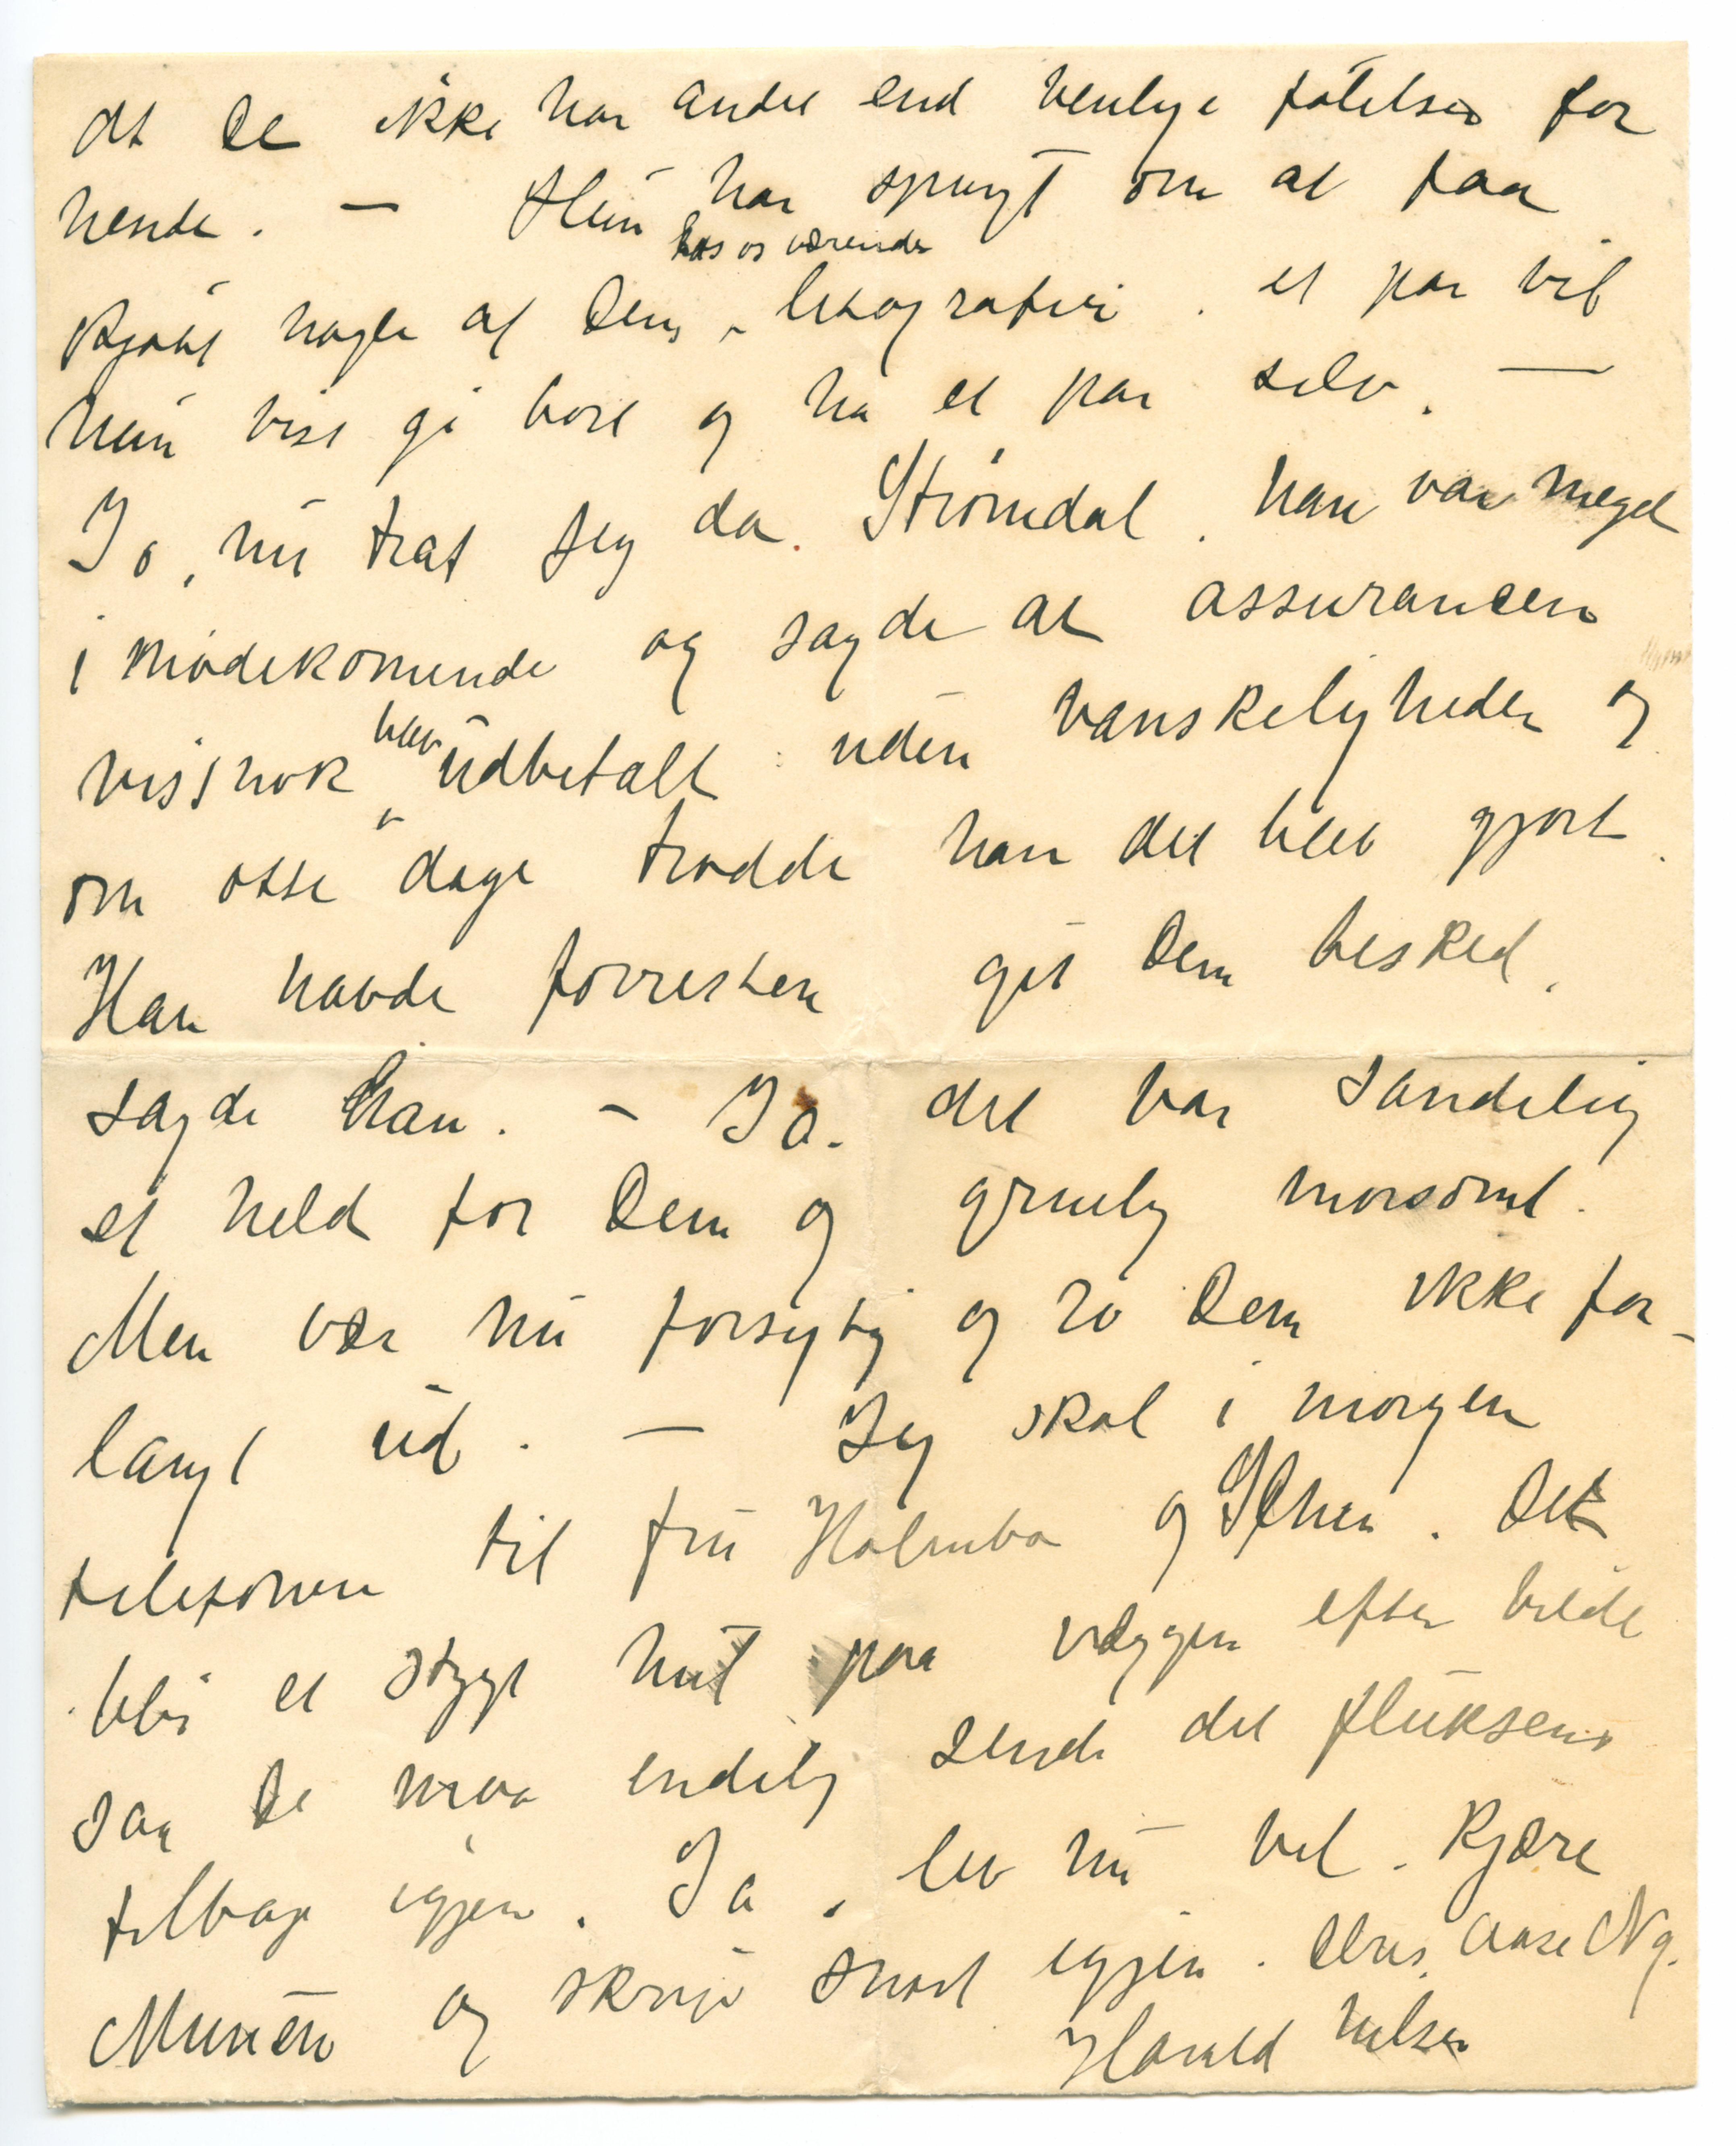 at De ikke har andet end venlige følelser for
hende. — Hun har spurgt om at faa
hos os værende
kjøbt nogle af Deres litografier. et par vil
hun vist gi bort og ha et par selv. —
Jo, nu traf jeg da Strømdal. han var meget
imødekommende og sagde at assurancen
blev
vistnok udbetalt uden vanskeligheder og
om otte dage trodde han det blev gjort.
Han havde forresten git Dem besked,
sagde han. — Ja. det var sandelig
et held for Dem og gruelig morsomt.
Men vær nu forsigtig og ro Dem ikke for-
langt ud. — Jeg skal i morgen
telefonere til fru Holmboe og . Det
blir et stygt hul paa væggen efter billedet
saa De maa endelig sende det fluksens
tilbage igjen. Ja, lev nu vel. Kjære
Munch og skriv snart igjen. Deres Aase Ng.
Harald Nilsen